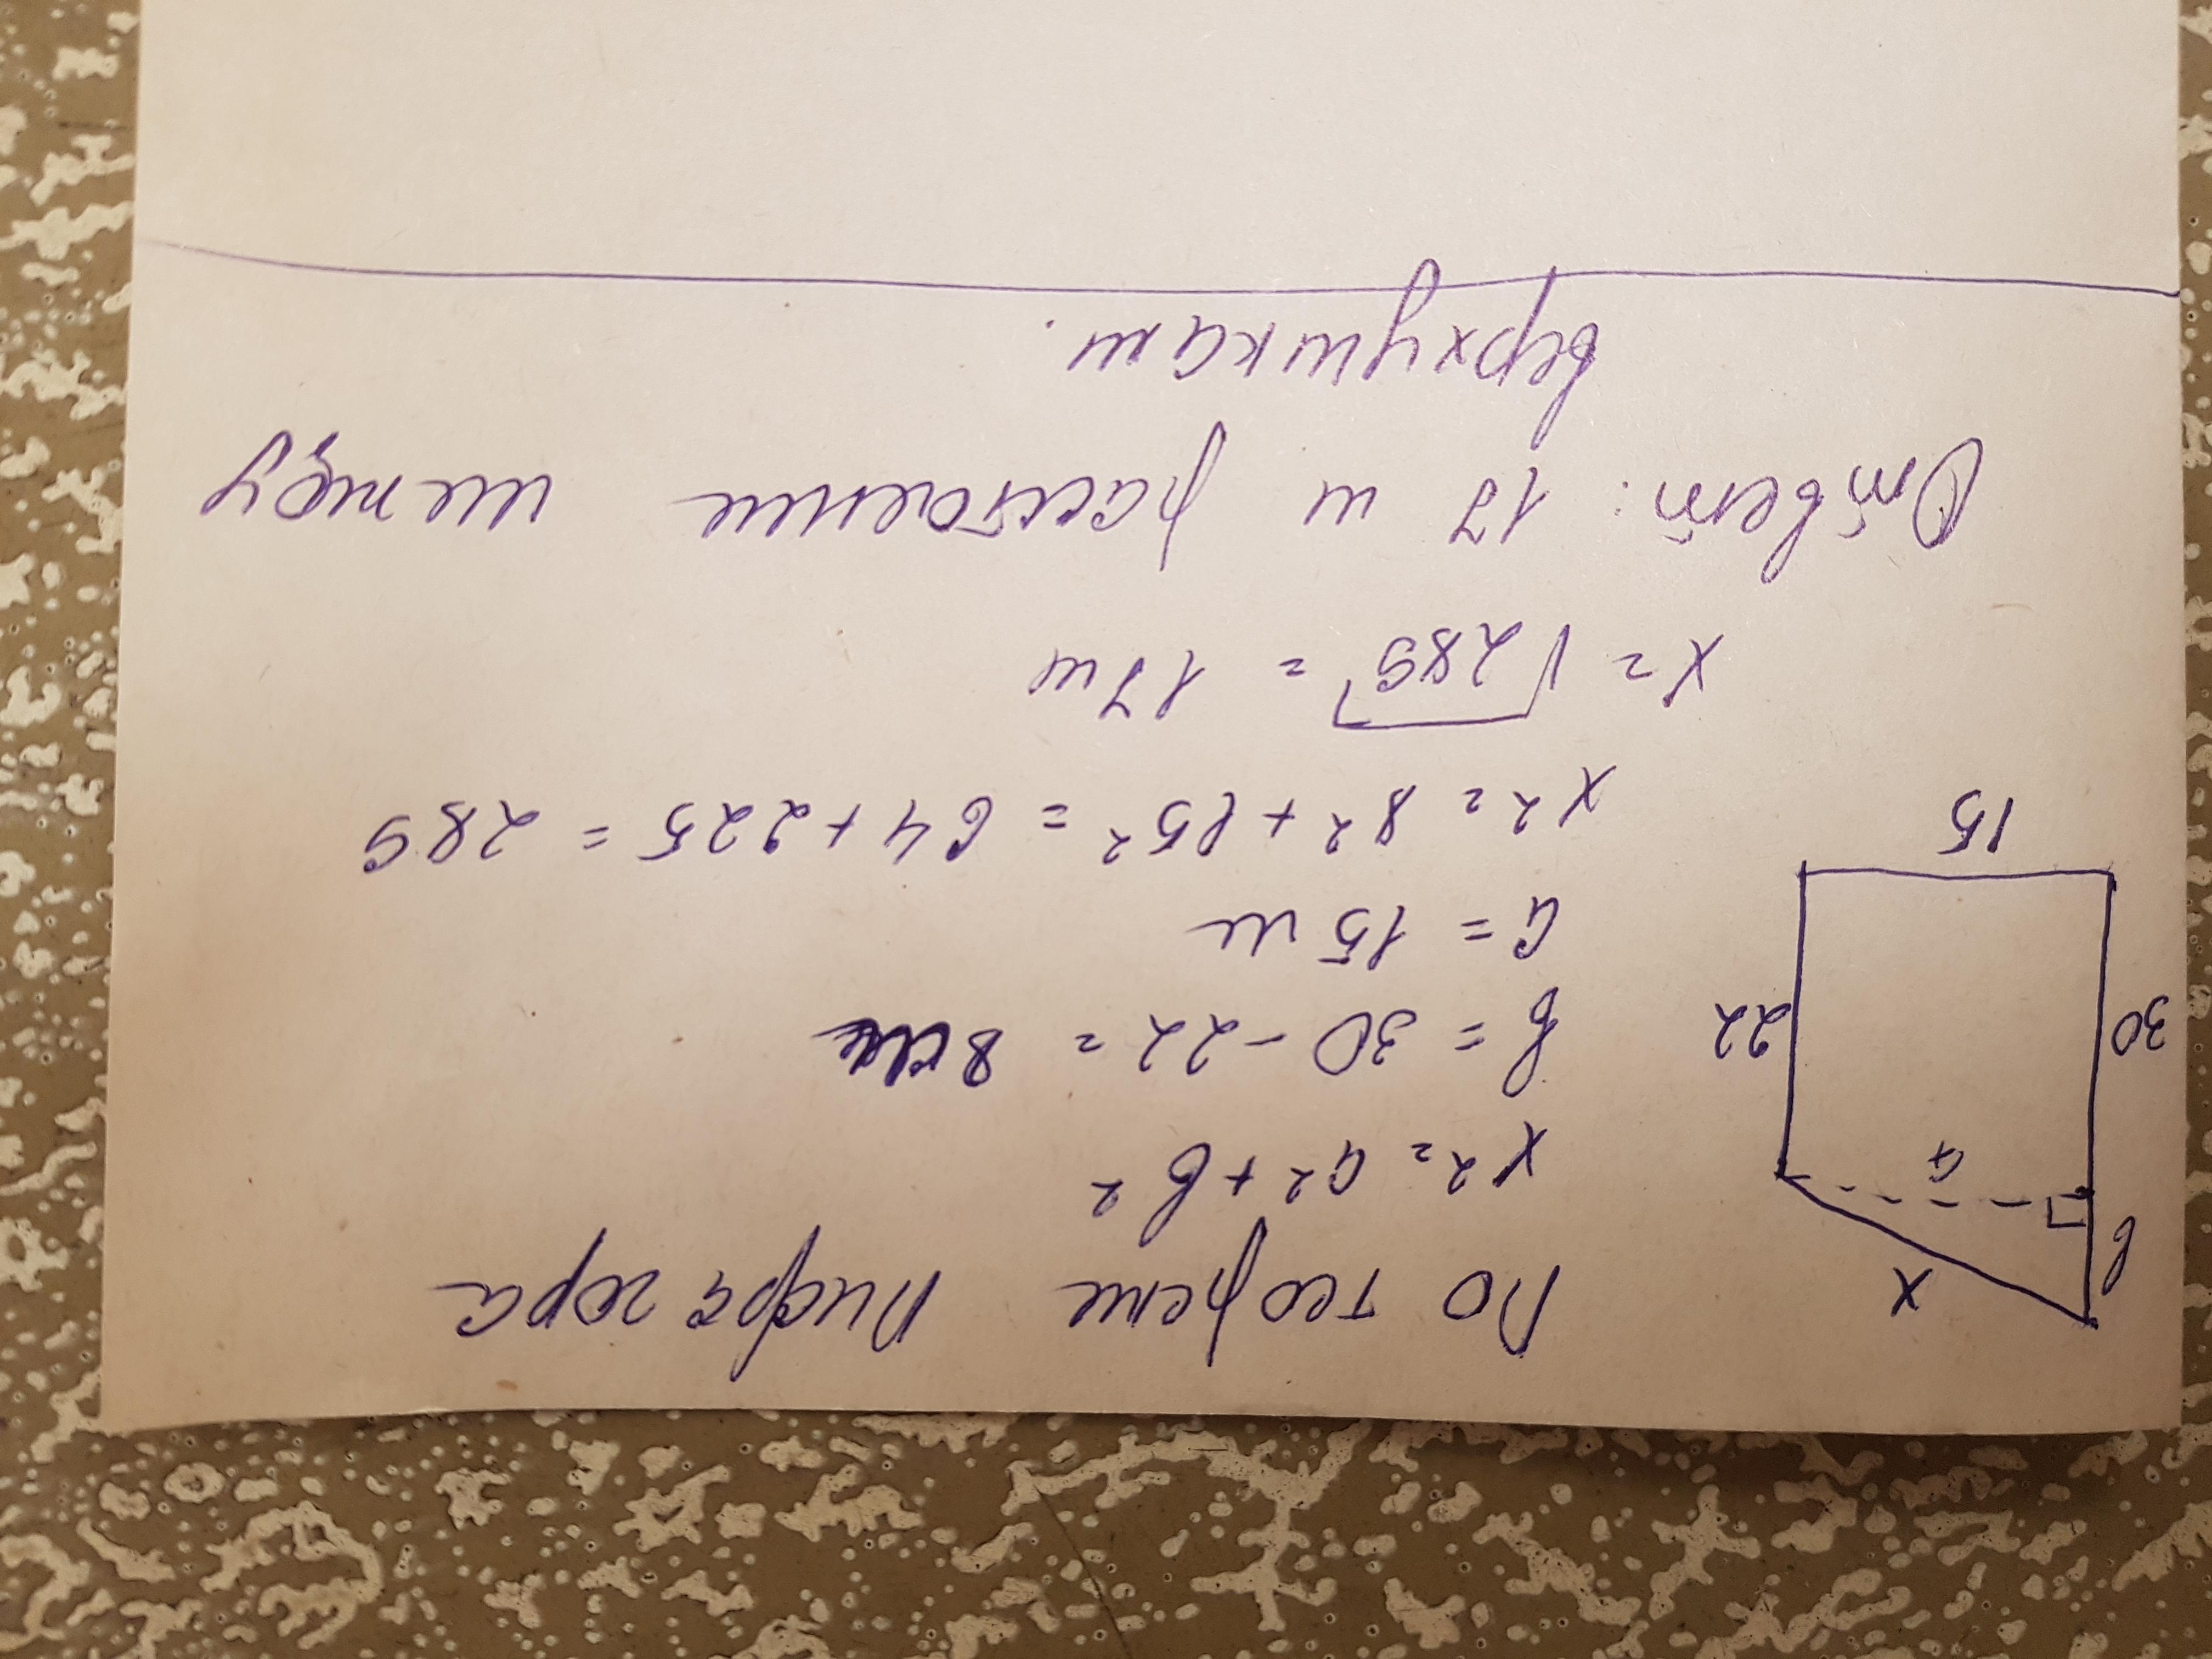 По теореме Пифагора
x² = a² + b²
b = 30 - 22 = 8 м
a = 15 м
x² = 8² + 15² = 64 + 225 = 289
x = √289 = 17 м
Ответ: 17 м расстояние между
верхушками.
x
b
a
30
22
15